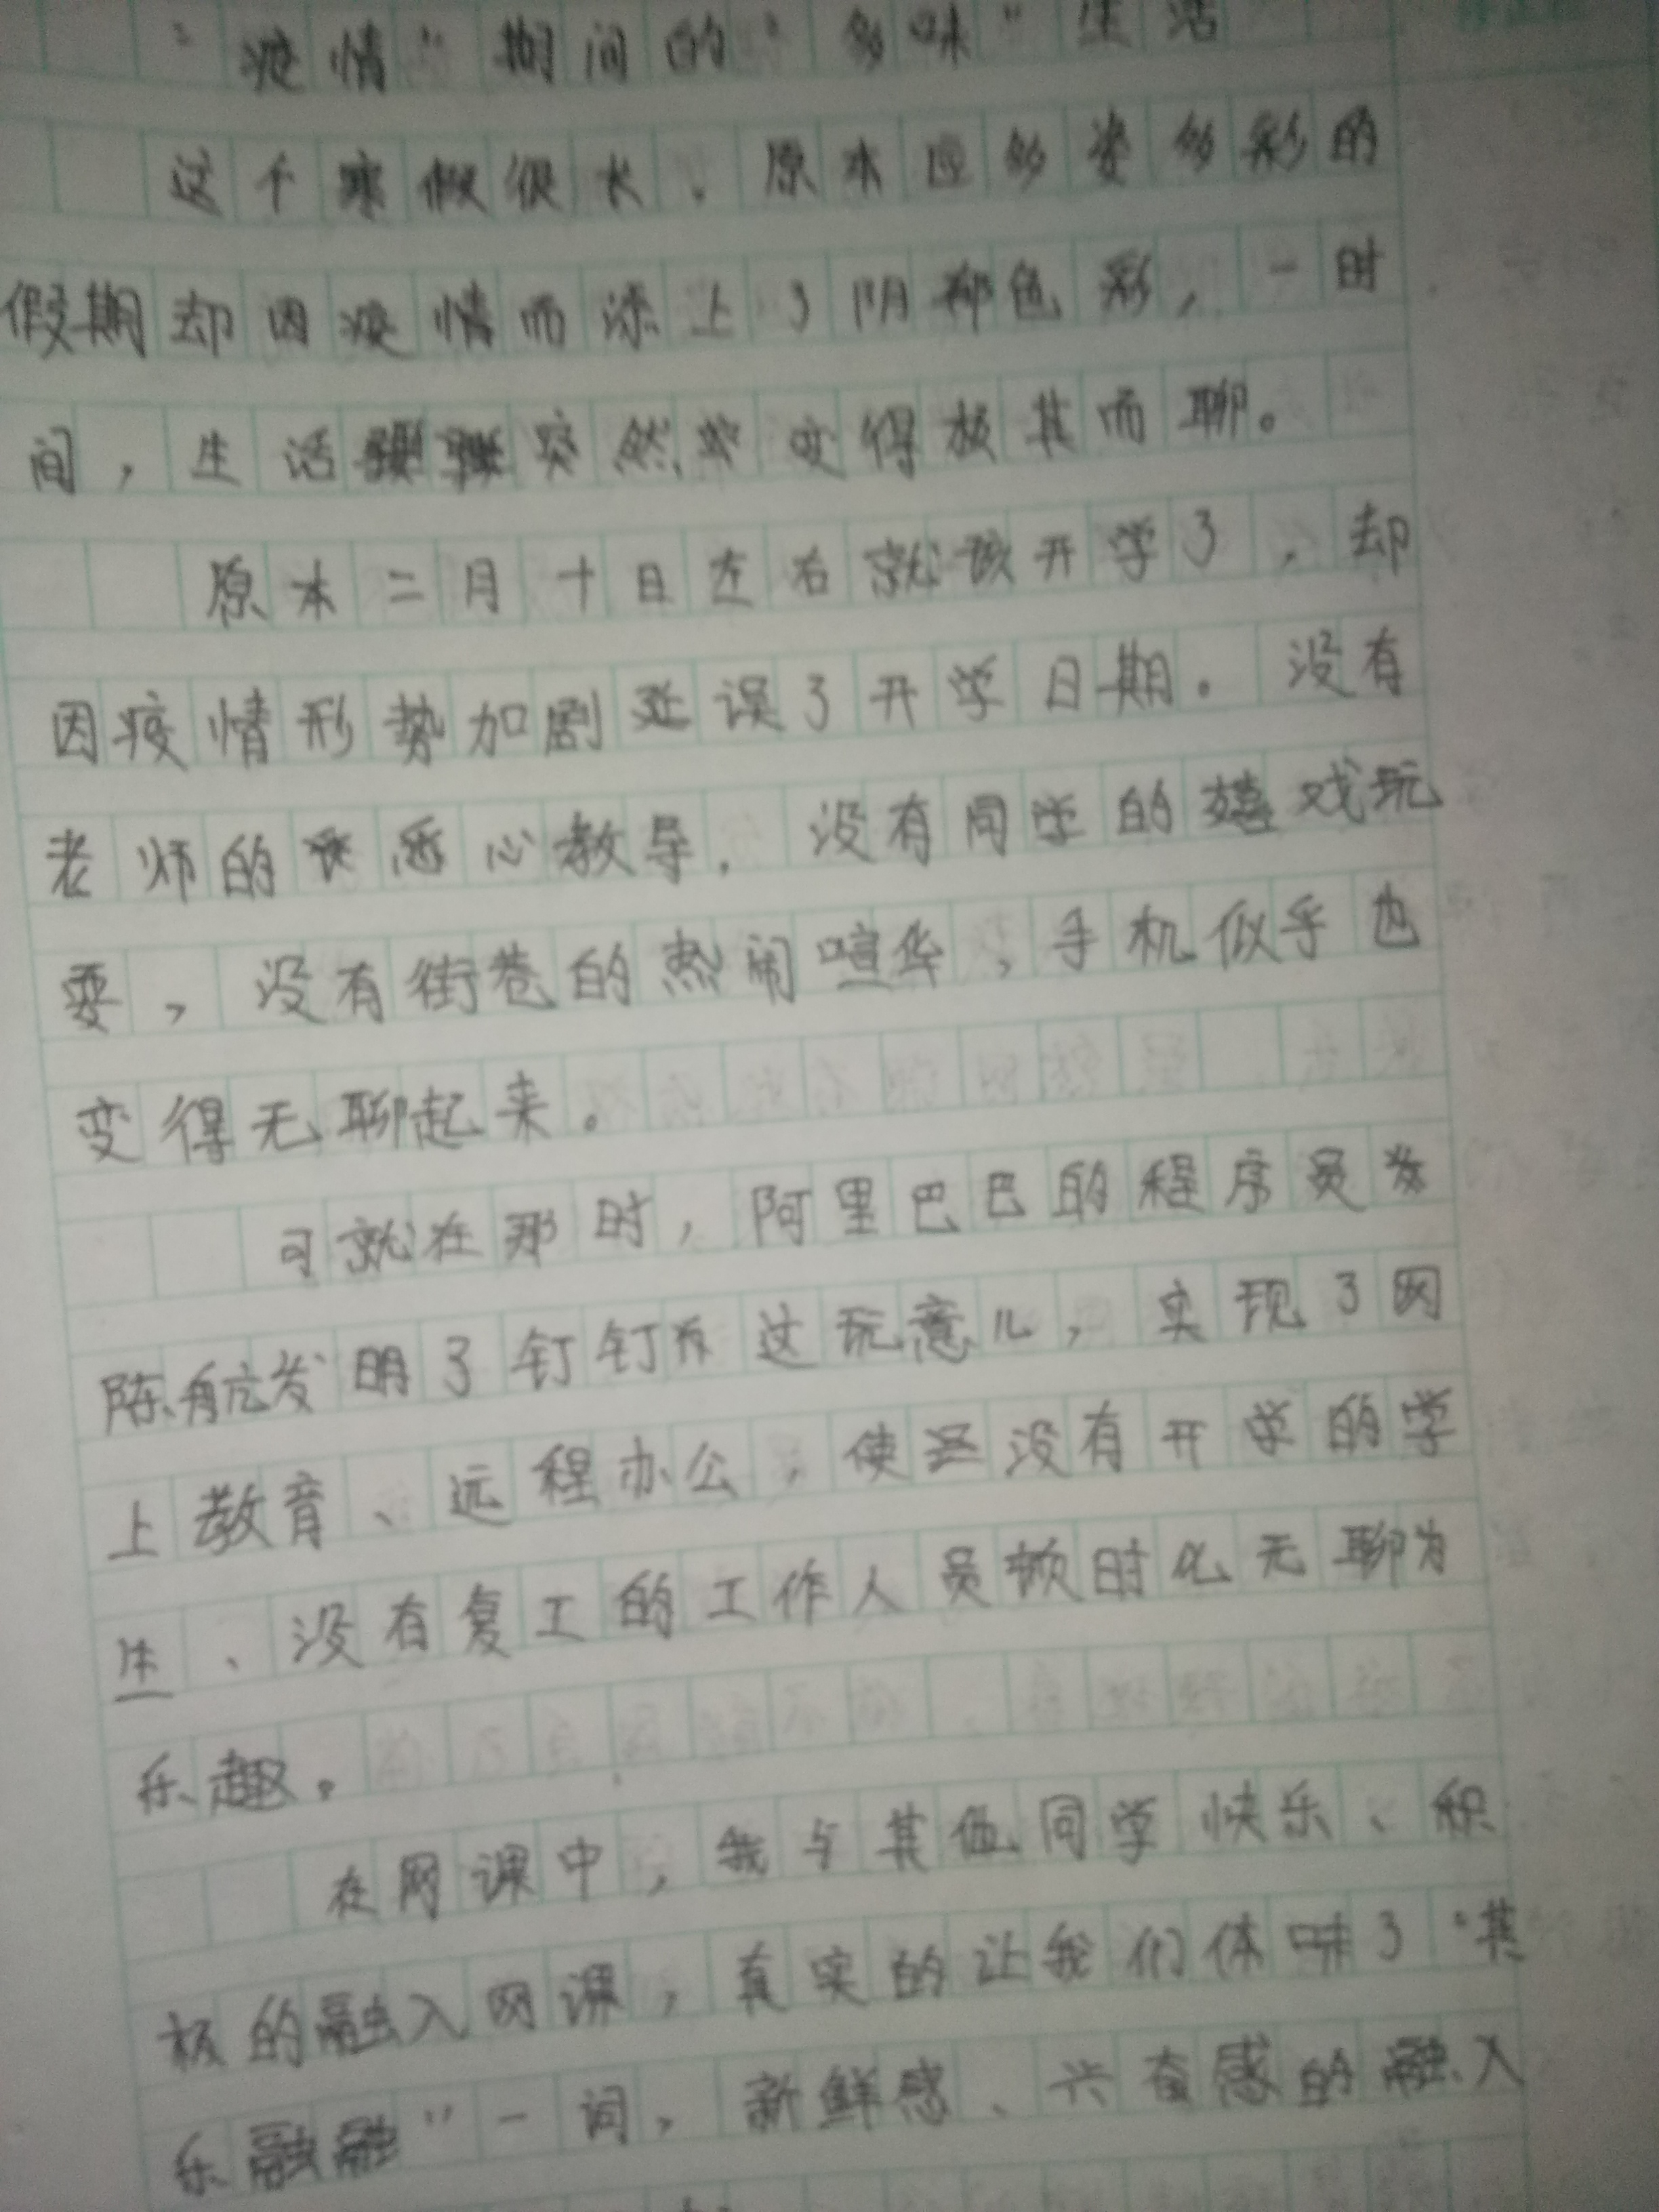 “疫情”期间的“多味”生活
这个寒假很长，原本应多姿多彩的
假期却因疫情而添上了阴郁色彩，一时
间，生活突然变得极其而聊。
原本二月十日左右就该开学了，却
因疫情形势加剧延误了开学日期。没有
老师的悉心教导，没有同学的嬉戏玩
耍，没有街巷的热闹喧华，手机似乎也
变得无聊起来。
可就在那时，阿里巴巴的程序员
陈航发明了钉钉这玩意儿，实现了网
上教育、远程办公，使还没有开学的学
生、没有复工的工作人员顿时化无聊为
乐趣。
在网课中，我与其他同学快乐、积
极的融入网课，真实的让我们体味了“其
乐融融”一词，新鲜感、兴奋感的融入